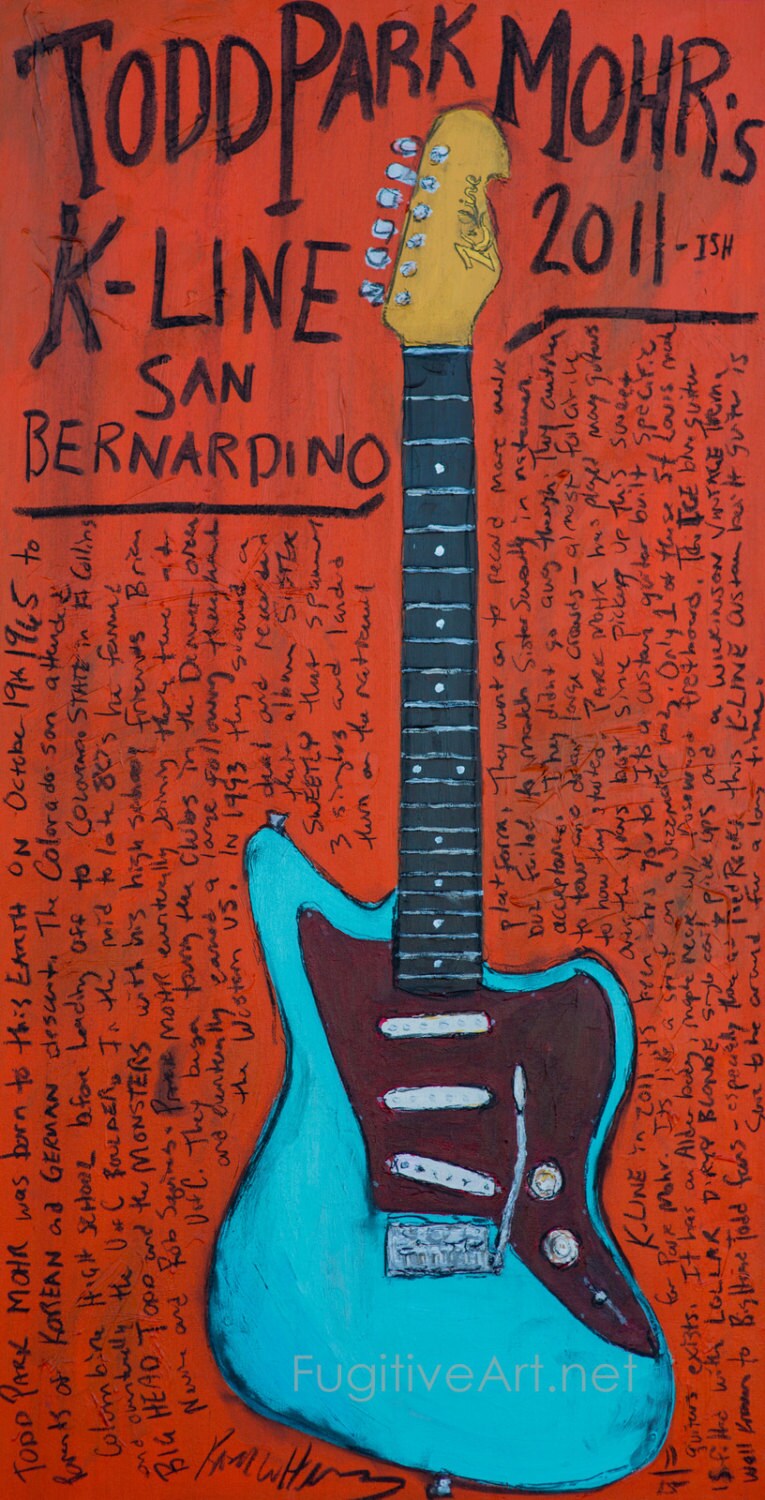 TODD PARK MOHR'S
K-LINE
2011-ISH
SAN
BERNARDINO
K-Line
TODD PARK MOHR was born to this EARTH ON October 19th 1965 to
Parents of KOREAN and GERMAN descent. The Colorado son attended
Columbine HIGH SCHOOL before heading off to COLORADO STATE in Ft Collins
and eventually the U of C BOULDER. In the mid to late 80's he formed
BIG HEAD TODD and the MONSTERS with his high school friends Brian
Nevin and Rob Squires. MOHR eventually joining there time at
U of C. They began touring the clubs in the Denver area
and eventually earned a large following throughout
the Western US. IN 1993 they signed a
deal and recorded
their album SISTER
SWEETLY that spawned
3 singles and landed
them on the national
Platform. They went on to record more work
but failed to match Sister Sweetly in mainstream
acceptance. They didn't go away though. They continue
to tour and draw large crowds - almost full circle
to how they started. PARK MOHR has played many guitars
over the years but since picking up this sweet
K-LINE in 2011 it's been his go to. It's a custom guitar built specific
for Park Mohr. It's like a strat on a Jazzmaster body. Only 1 of these St Louis made
guitars exists. It has an Alder body, maple neck w/ Rosewood fretboard. This ICE blue guitar
is fitted with LOLLAR DIRTY BLONDE single coil pick ups and a WILKINSON VINTAGE Trem.
Well known to Big Head Todd fans - especially those at Red Rocks this K-LINE custom built guitar is
sure to be around for a long time.
FugitiveArt.net